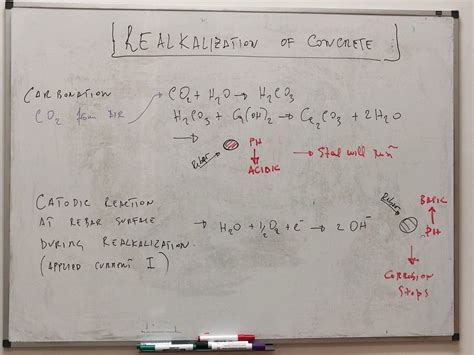 REALKALIZATION OF CONCRETE
CARBONATION
CO2 FROM AIR
CO2 + H2O → H2CO3
H2CO3 + Ca(OH)2 → Ca2CO3 + 2H2O
Rebar
PH
ACIDIC
→ Steel will
CATODIC REACTION
AT REBAR SURFACE
DURING REALKALIZATION
(APPLIED CURRENT I)
→ H2O + 1/2 O2 + e- → 2 OH-
Rebar
BASIC
PH
CORROSION
STOPS